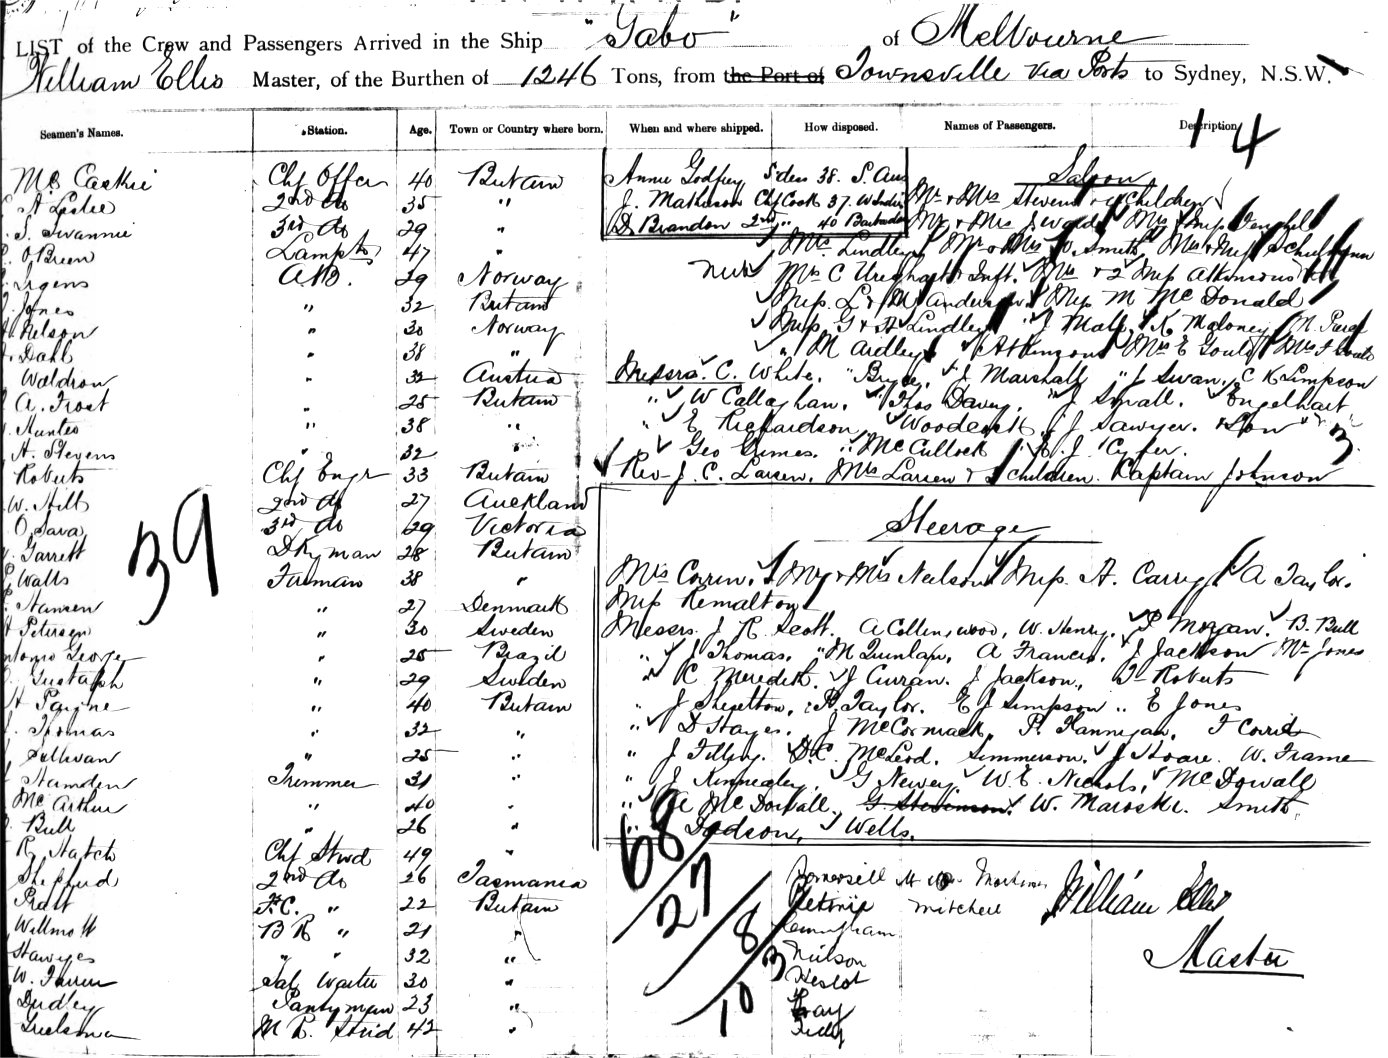 LIST of the Crew and Passengers Arrived in the Ship "Gabo" of Melbourne
William Ellis Master, of the Burthen of 1246 Tons, from the Port of Townsville via Ports to Sydney, N.S.W.
Seamen's Names. Station. Age. Town or Country where born. When and where shipped. How disposed. Names of Passengers. Description
14
Mc Caskie Chf Offer 40 Britain
A Leslie 2nd do 35 "
Swannie 3rd do 29 "
O'Brien Lamps 47 "
Jrgens AB. 29 Norway
Jones " 32 Britain
Nelson " 30 Norway
Dahl " 38 "
Waldron " 32 Austria
A. Frost " 25 Britain
Hunter " 38 "
H. Stevens " 32 "
Roberts Chf Engr 33 Britain
W. Hill 2nd do 27 Auckland
O'Gara 3rd do 29 Victoria
Garrett Dkyman 28 Britain
Watts Fireman 38 "
Hansen " 27 Denmark
Petersen " 30 Sweden
Antonio George " 25 Brazil
Gustafsh " 29 Sweden
H Payne " 40 Britain
Thomas " 32 "
Sullivan " 25 "
Hamden Trimmer 31 "
McArthur " 40 "
Bull " 26 "
R. Hatch Chf Stwd 49 "
Shepherd 2nd do 26 Tasmania
Pratt F.C. " 22 Britain
Willmott BR " 21 "
Hawyes " " 32 "
W. Sal Waiter 30 "
Dudley Pantryman 23 "
M R. Stwd 42 "
39
Annie Godfrey S'dess 38. S. Aus
J. Matheson Chf Cook 37. W Indies
D Brandon 2nd " 40 Barbados
Saloon
Mr & Mrs Stevens & children
Mr & Mrs Swords Mrs & Miss Fenghel
Mrs. Lindley, Mr & Mrs W. Smith, Mrs & Miss
Mrs C Urquhart & Inft. Mrs & 2 Miss Atkinsons
Miss L & M Anderson. Miss M McDonald
Miss G & A Lindley " J Mott, K Maloney, M. Purse
" M Ardley Atkinson Mrs E Gould Mrs F Gould
Messrs. C. White. " Bryce. J Marshall " J Swan. C K Simpson
" W Callaghan. Thos Davey. " J Small. Engelhart
" E Richardson, Woodcock, J Sawyer. & Son 3
" Geo Grimes. " McCullock " R. J. Cyfer.
Rev J. C. Larsen, Mrs Larsen & children. Captain Johnson
Steerage
Mrs Corrin. Mr & Mrs Neilson Miss. A. Carry A Taylor.
Miss Hemalton
Messrs. J R Scott. A Collinswood, W. Henry. P Morgan. B. Bull
" J Thomas. " M Quinlan, A Francis. J Jackson Mr Jones
" R Meredith. J Curran. J Jackson., T Roberts
J Skepelton, H. Taylor. E J Simpson " E Jones
" D Hayes. J McCormack, P. Hannigan, T Corrid
" J Tilley. D.C. McLeod. Simmerson. J Hoare. W. Frame
" J Kinnealey, G Newey. W. E. Nichols, McDowall
" A McDowall. G. Stevenson. W. Maroske. Smith
" Dodson, Wells.
68
27
8
3
10
Somersell Mortimer
Petrie Mitchell William Ellis
Cunningham
Neilson Master
Heslot
Gray
Tidy